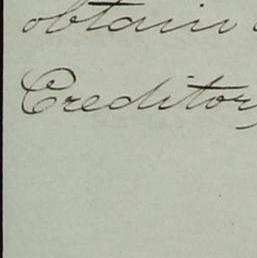 obtain
Creditor,